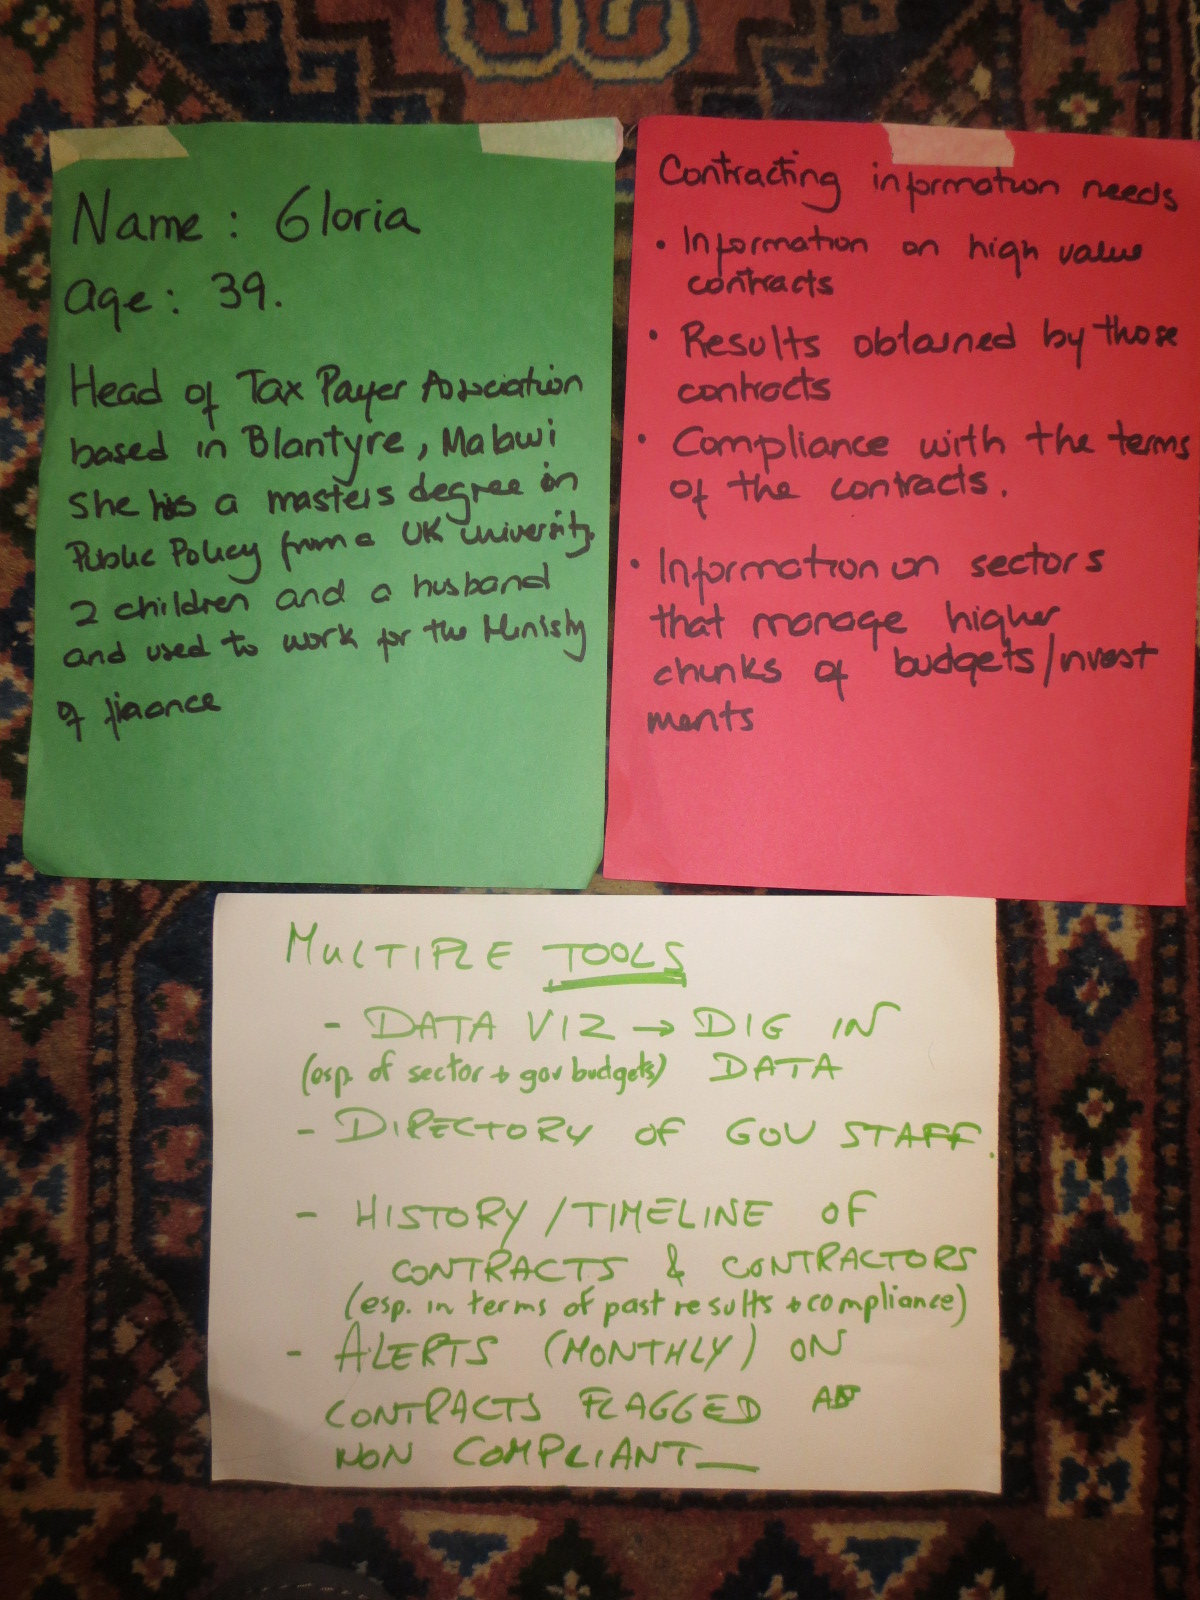 Name: Gloria
Age: 39.
Head of Tax Payer Association
based in Blantyre, Malawi
She has a masters degree in
Public Policy from a UK university.
2 children and a husband
and used to work for the Ministry
of finance
Contracting information needs
• Information on high value
contracts
• Results obtained by those
contracts
• Compliance with the terms
of the contracts.
• Information on sectors
that manage higher
chunks of budgets/invest
ments
MULTIPLE TOOLS
- DATA VIZ → DIG IN
(esp. of sector + gov budgets) DATA
- DIRECTORY OF GOV STAFF.
- HISTORY/TIMELINE OF
CONTRACTS & CONTRACTORS
(esp. in terms of past results + compliance)
- ALERTS (MONTHLY) ON
CONTRACTS FLAGGED AS
NON COMPLIANT